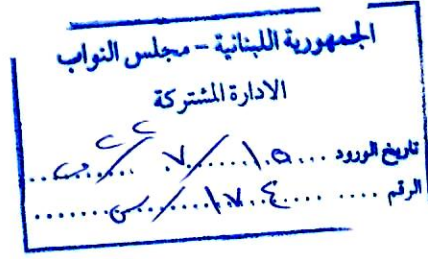 الجمهورية اللبنانية – مجلس النواب
الادارة المشتركة
تاريخ الورود ١٥/٧/
الرقم